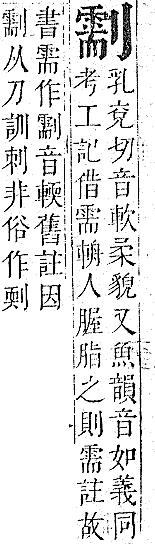 乳兗切音軟柔貌又魚韻音如義同
考工記借需人腛脂之則需註故
書需作音輭舊註因
从刀訓刺非俗作